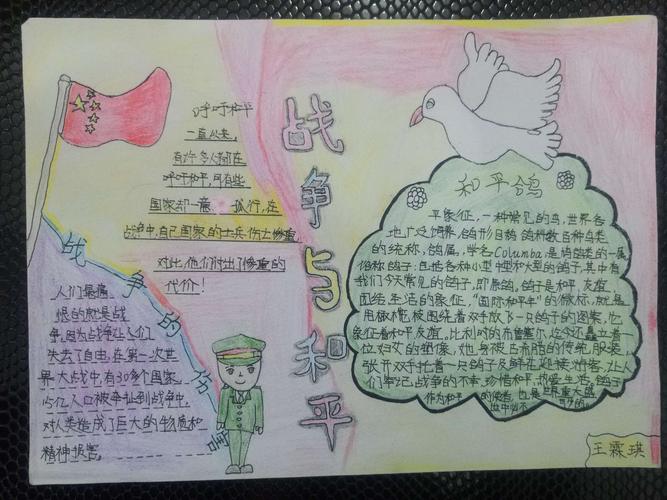 战争与和平
呼吁和平
一直以来,
有许多人都在
呼吁和平,可有些
国家却一意 孤行,在
战争中,自己国家的士兵伤亡惨重,
对此,他们付出了惨重的
代价!
战争的伤害
人们最痛
恨的就是战
争,因为战争让人们
失去了自由,在第一次世
界大战中,有30多个国家
15亿人口被牵扯到战争中,
对人类造成了巨大的物质和
精神损害,
和平鸽
平象征,一种常见的鸟,世界各
地广泛饲养,鸽形目鸽 鸽种数百种鸟类
的统称,鸽属,学名Columba,是鸠鸽类的一属
俗称鸽子:包括各种小型中型和大型的鸽子,其中有
我们今天常见的鸽子,即原鸽,鸽子是和平、友谊、
团结、生活的象征,“国际和平年”的徽标,就是
用橄榄枝围绕着双手放飞一只鸽子的图案,它
象征着和平友谊。比利时的布鲁塞尔,迄今还矗立着一
位妇女的塑像,她身披古希腊的传统服装,
张开双手托着一只鸽子及鲜花迎接游客,让人
们牢记,战争的不幸,珍惜和平,热爱生活,鸽子
作为和平 的使者,也是 世界重大盛
会中必不 可少的。
王霖琪